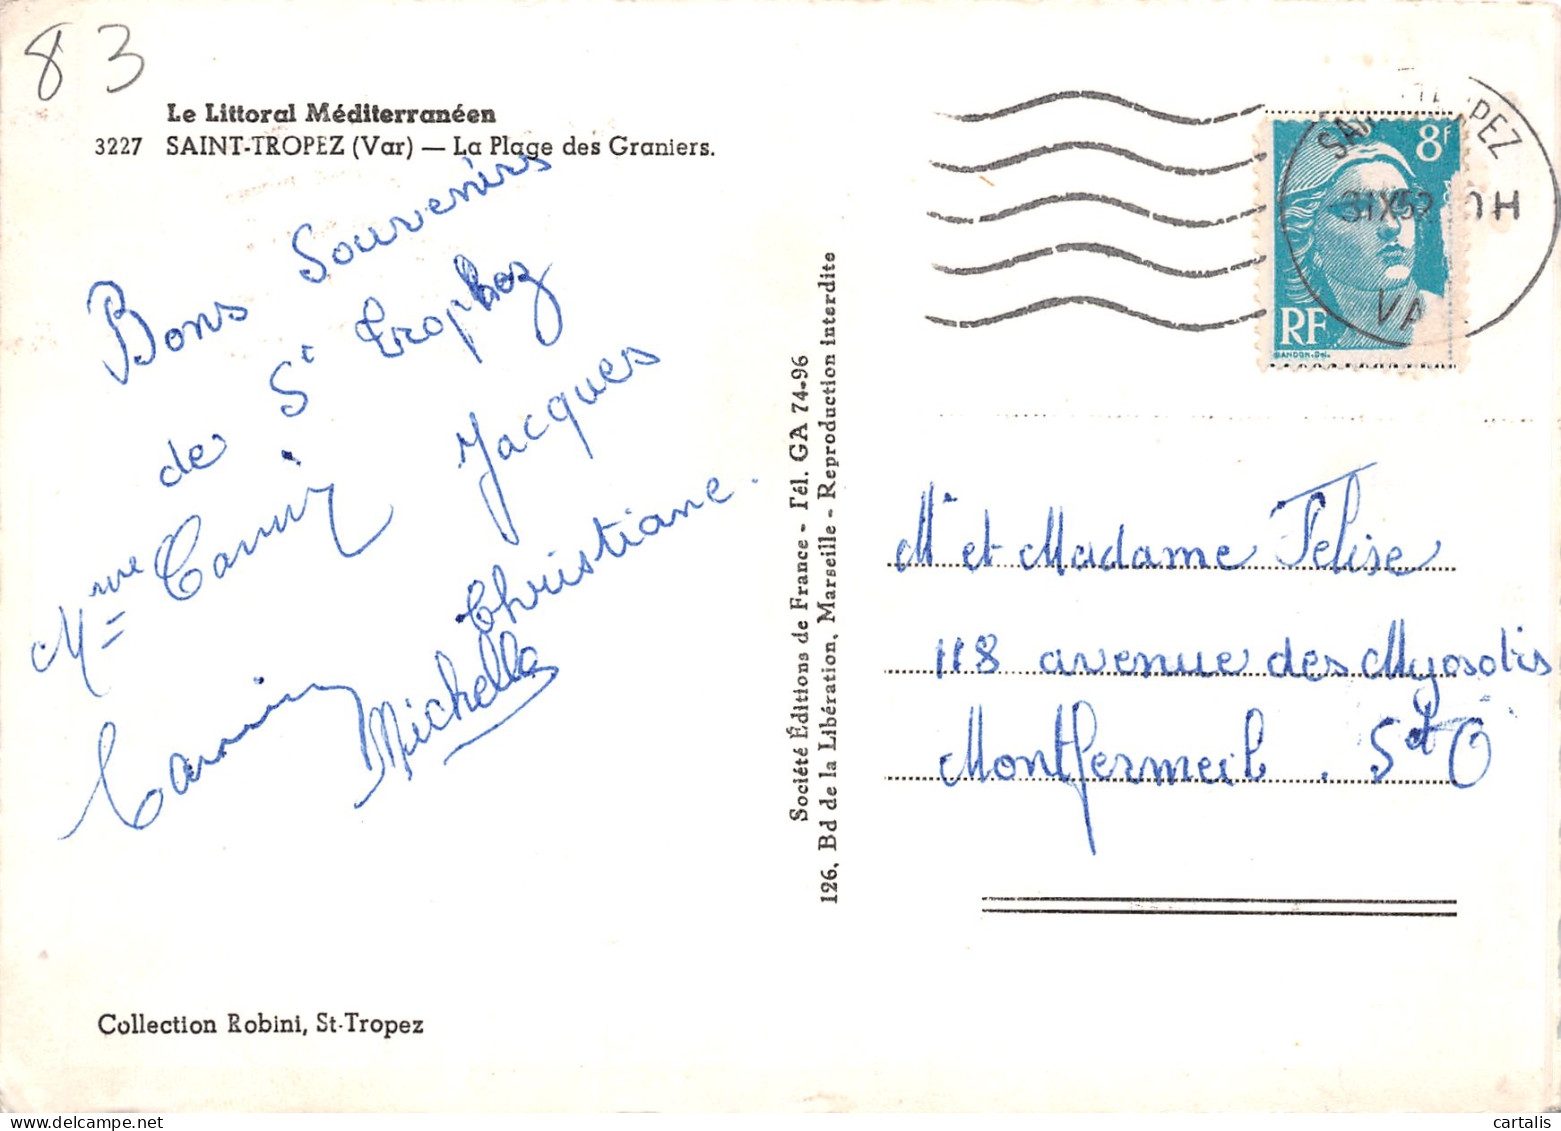 83
Le Littoral Méditerranéen
3227 SAINT-TROPEZ (Var) — La Plage des Graniers.
Bons Souvenirs
de St Trophez
Mme Jacques
Christiane.
Michelle
Collection Robini, St-Tropez
Société Éditions de France - Tél. GA 74-96
126, Bd de la Libération, Marseille - Reproduction interdite
8f
RF
GANDON-Del.
VA
Mr et Madame Felise
118 avenue des Myosotis
Montfermeil. S et O
cartalis